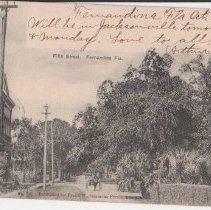 Fernandina Fla Oct.
Will be in Jacksonville tomorrow
& Monday. Love to all
Arthur
Fifth Street. Fernandina Fla.
Published by